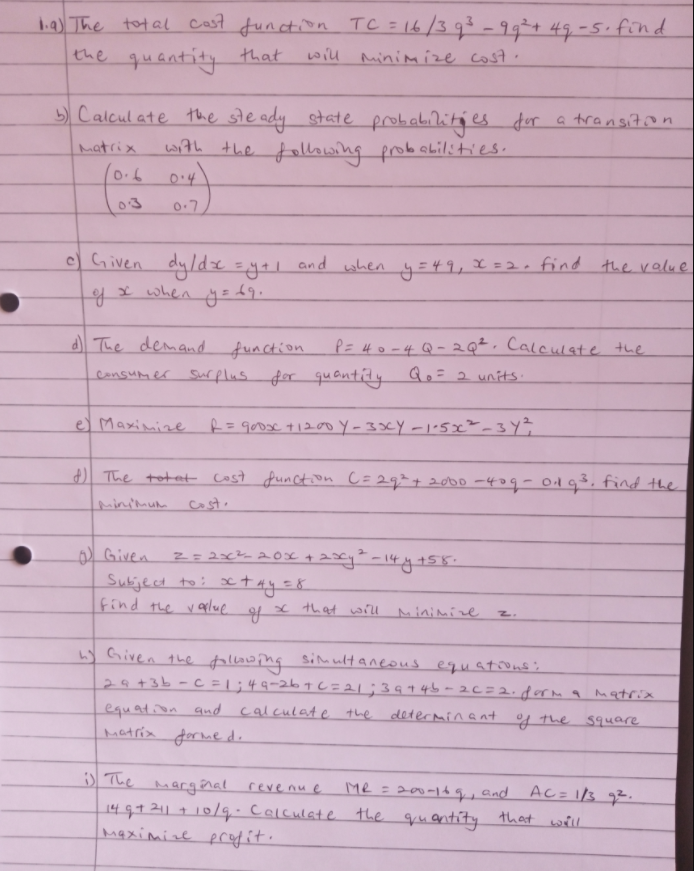 1.a) The total cost function TC = 16/3 q³ - 9q² + 4q - 5. find
the quantity that will minimize cost.
b) Calculate the steady state probabilities for a transition
matrix with the following probabilities.
(0.6 0.4
0.3 0.7)
c) Given dy/dx = y+1 and when y = 49, x = 2. find the value
of x when y = 69.
d) The demand function P = 40 - 4Q - 2Q². Calculate the
consumer surplus for quantity Q₀ = 2 units.
e) Maximize R = 900x + 1200Y - 3xY - 1.5x² - 3Y²,
f) The total cost function C = 2q² + 2000 - 40q - 0.1q³. find the
minimum cost.
g) Given z = 2x² - 20x + 2xy² - 14y + 58.
Subject to: x + 4y = 8
find the value of x that will minimize z.
h) Given the following simultaneous equations:
2a + 3b - c = 1; 4a - 2b + c = 21; 3a + 4b - 2c = 2. form a matrix
equation and calculate the determinant of the square
matrix formed.
i) The marginal revenue MR = 200 - 16q, and AC = 1/3 q².
14q + 211 + 10/q. Calculate the quantity that will
maximize profit.